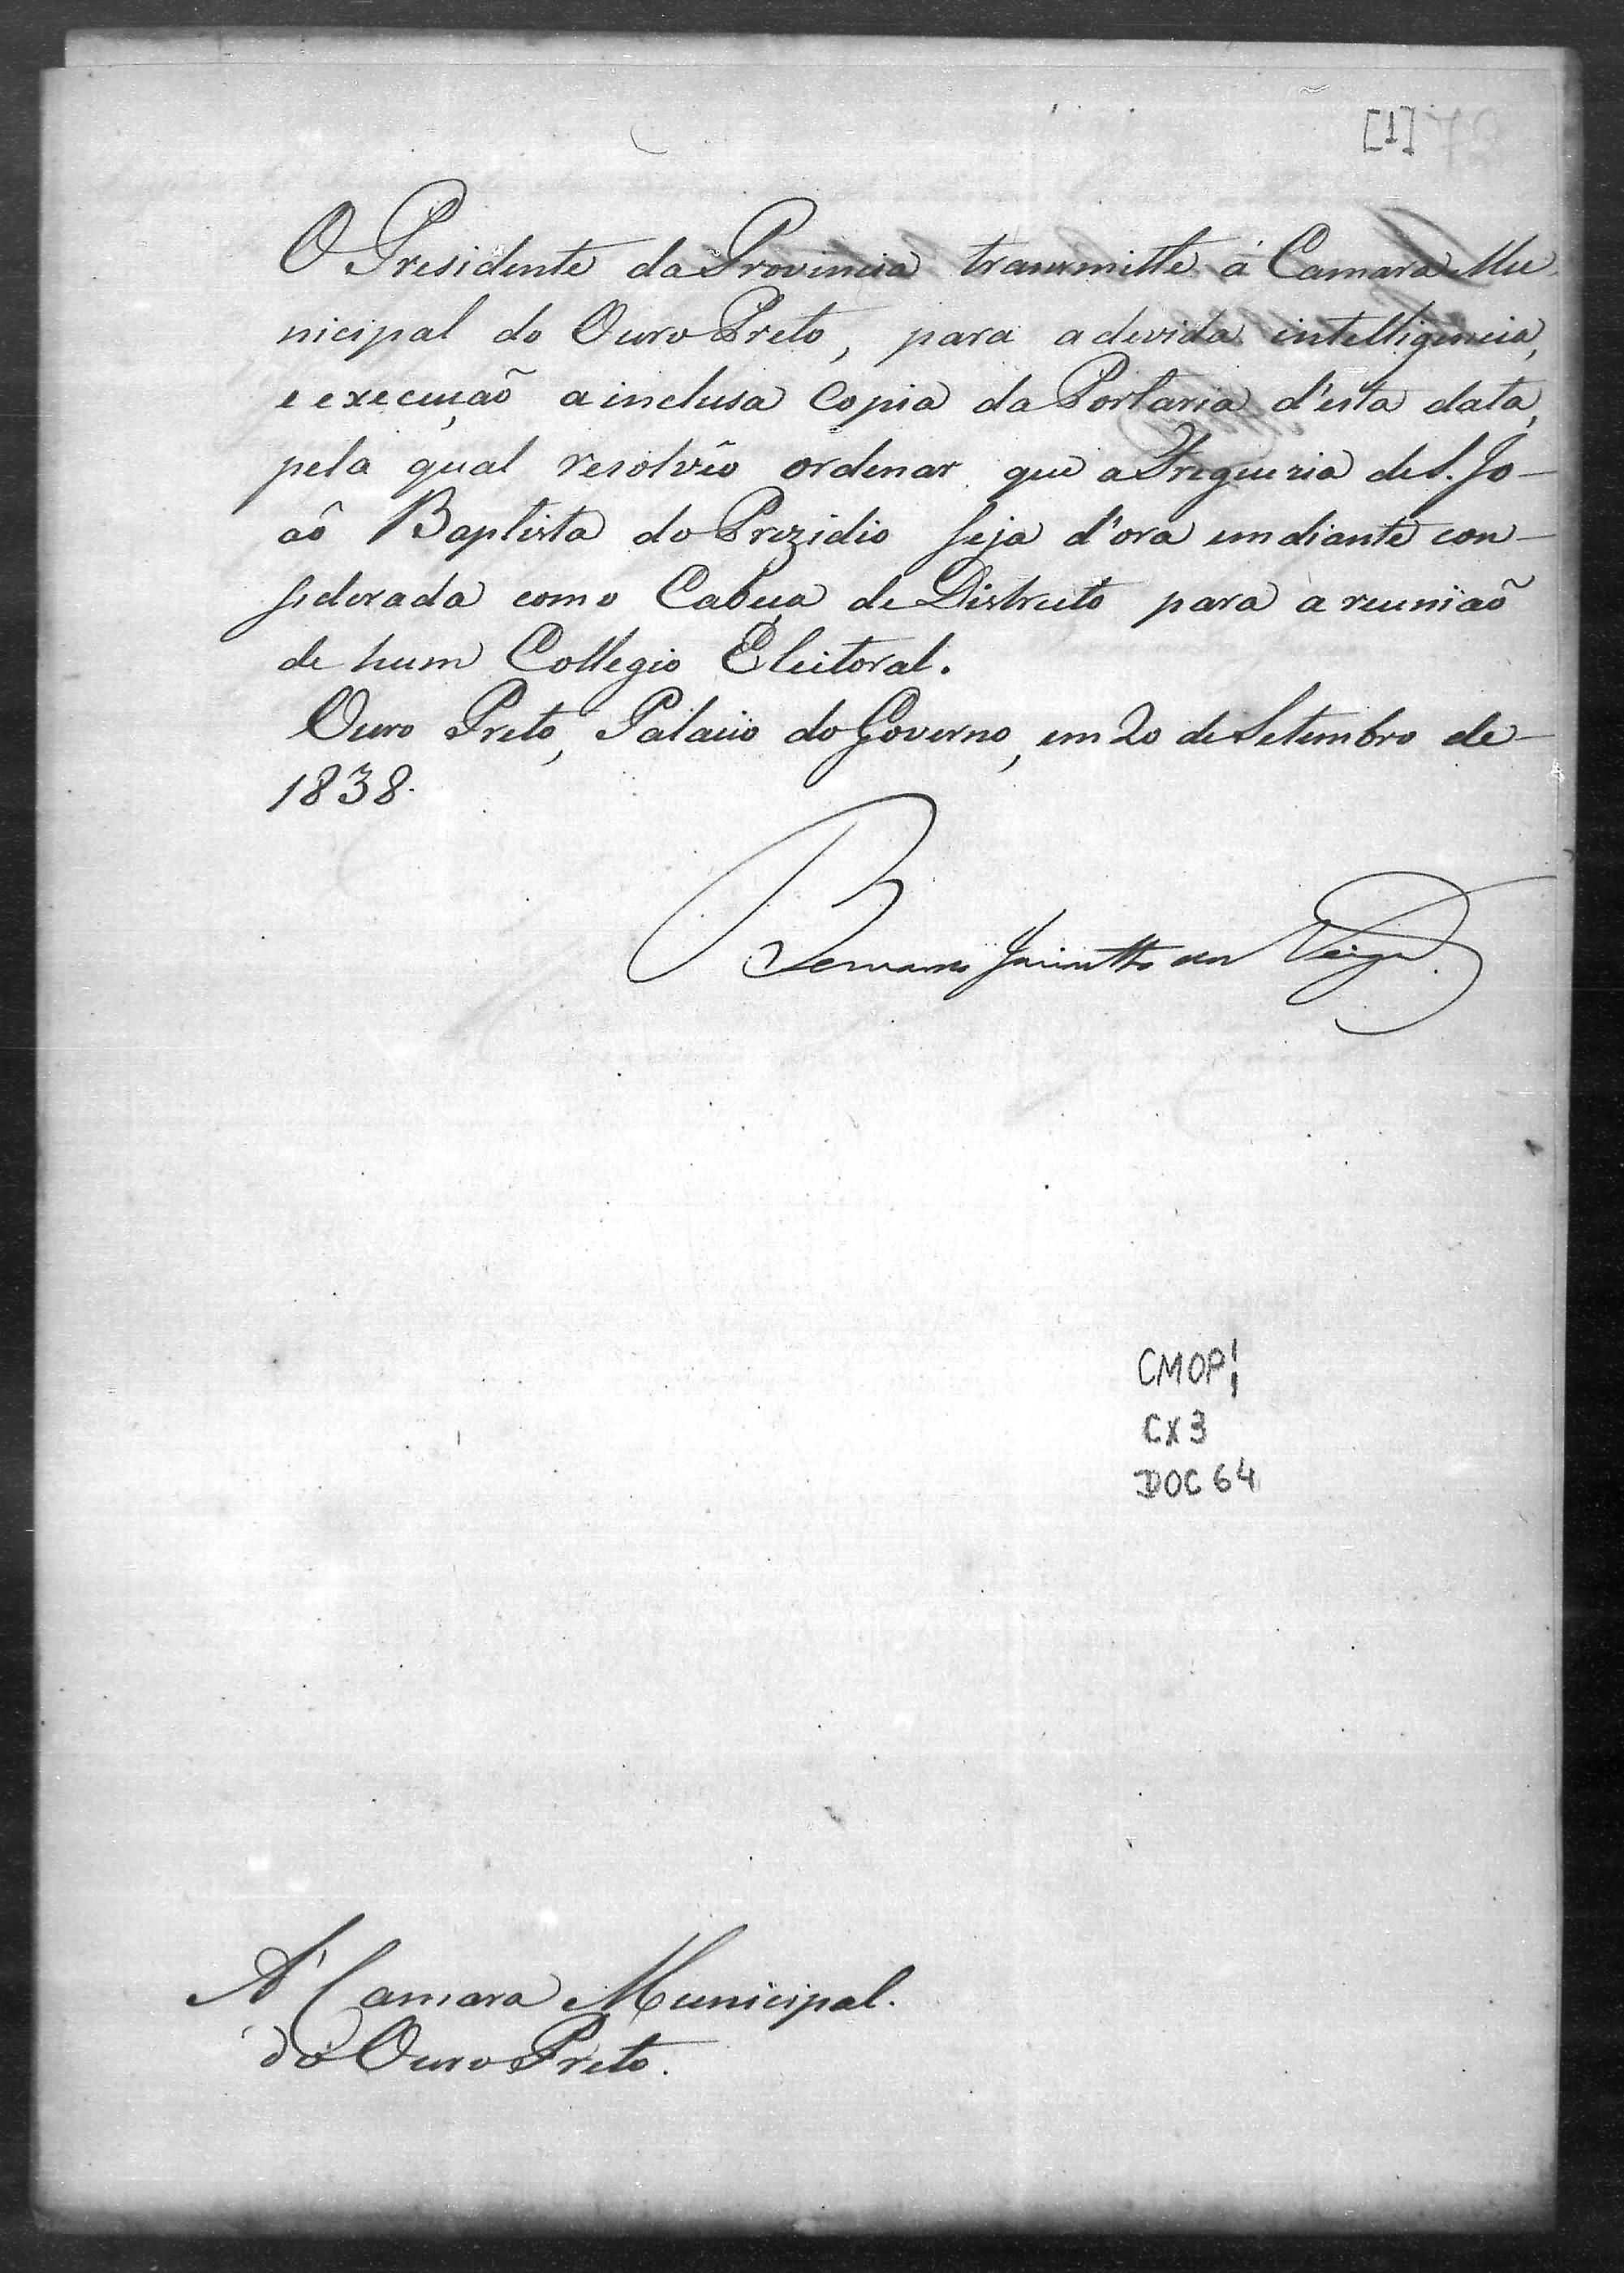 [1]
O Presidente da Provincia transmitte á Camara Mu
nicipal do Ouro Preto, para a devida intelligencia,
e execuçaõ a inclusa Copia da Portaria d'esta data,
pela qual resolvêo ordenar que a Freguezia de S. Jo-
aõ Baptista do Prezidio seja d'ora em diante con-
siderada como Cabeça de Districto para a reuniaõ
de hum Collegio Eleitoral.
Ouro Preto, Palacio do Governo, em 20 de Setembro de
1838.
Bernardo Jacintho da Veiga
CMOP
CX3
DOC 64
A' Camara Municipal.
do Ouro Preto.